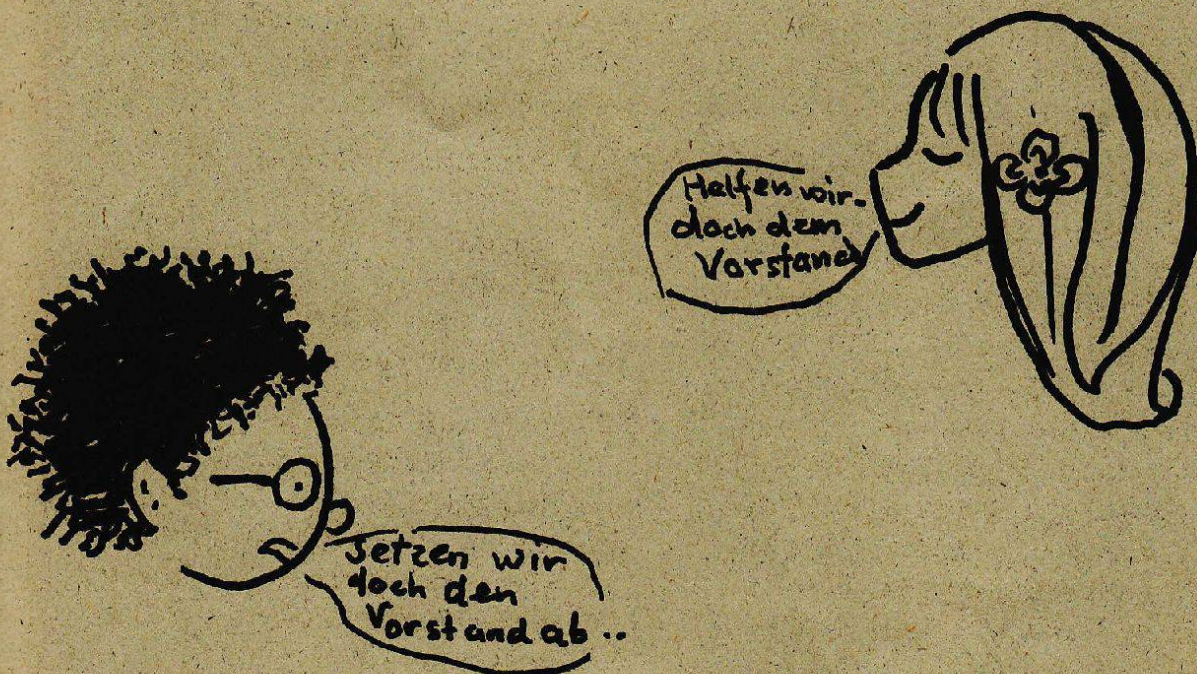 Helfen wir
doch dem
Vorstand
setzen wir
doch den
Vorstand ab ..